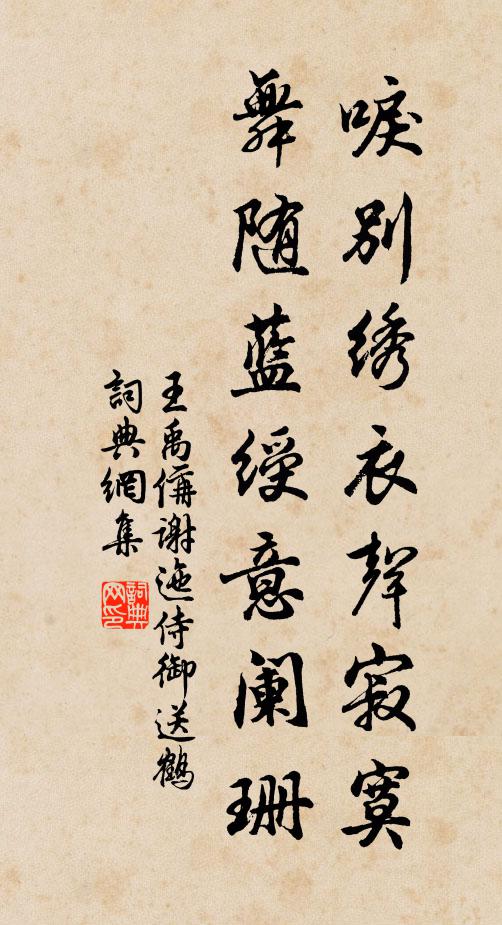 唳别绣衣聲寂寞
舞随藍綬意阑珊
王禹偁谢逊侍御送鶴
詞典網集
詞典网印